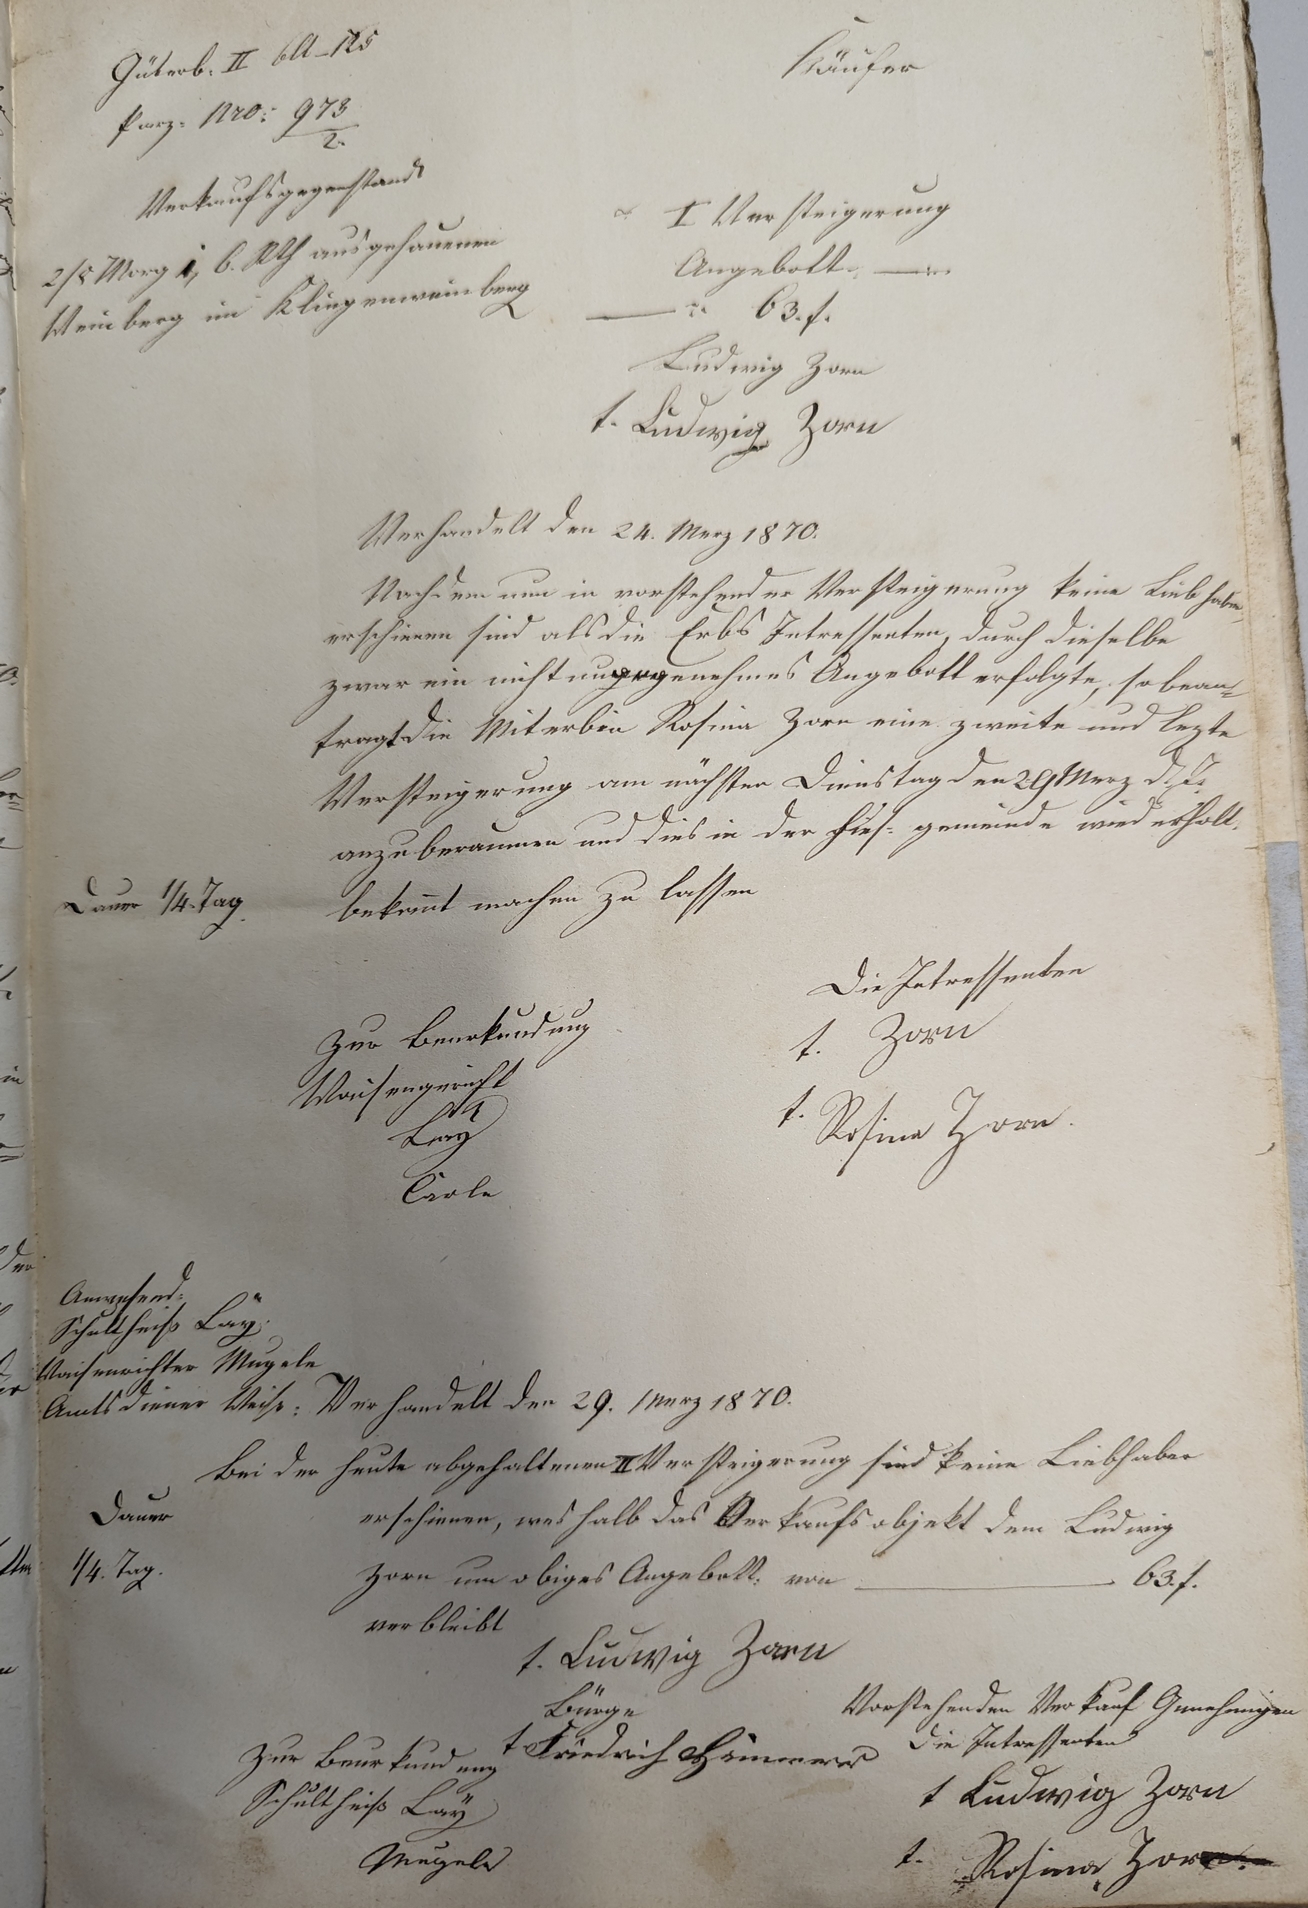 Güterb. II Bl. 125
Käufer
Parz. Nro: 973/2.
Verkaufsgegenstand
I Versteigerung
2/8 Morg 1, 6. Rth ausgehauenen
Angebott.
Weinberg im Klingenweinberg
63. f.
Ludwig Zorn
t. Ludwig Zorn
Verhandelt den 24. Merz 1870.
Nachdem nun in vorstehender Versteigerung keine Liebhaber
erschienen sind als die Erbs Intressenten, durch dieselbe
zwar ein nicht Angebott erfolgte, so bean-
tragt die Miterbin Rosina Zorn eine zweite und lezte
Versteigerung am nächsten Dienstag den 29 Merz d. J.
anzuberaumen und dies in der hies. gemeinde wiederholt
Dauer 1/4. Tag
bekannt machen zu lassen
Die Intressenten
Zur Beurkundung
t. Zorn
Waisengericht
t. Rosina Zorn.
Läÿ
Carle
Anwesend:
Schultheiß Läÿ.
Waisenrichter Mugele
Amtsdiener Weiß:
Verhandelt den 29. Merz 1870.
Bei der heute abgehaltenen II Versteigerung sind keine Liebhaber
Dauer
erschienen, weshalb das Verkaufsobjekt dem Ludwig
1/4. Tag.
Zorn um obiges Angebott: von 63. f.
verbleibt
t. Ludwig Zorn
Bürge
Vorstehenden Verkauf Genehmigen
t Friedrich
Die Intressenten
Zur Beurkundung
t Ludwig Zorn
Schultheiß Läÿ
t. Rosina Zorn.
Mugele